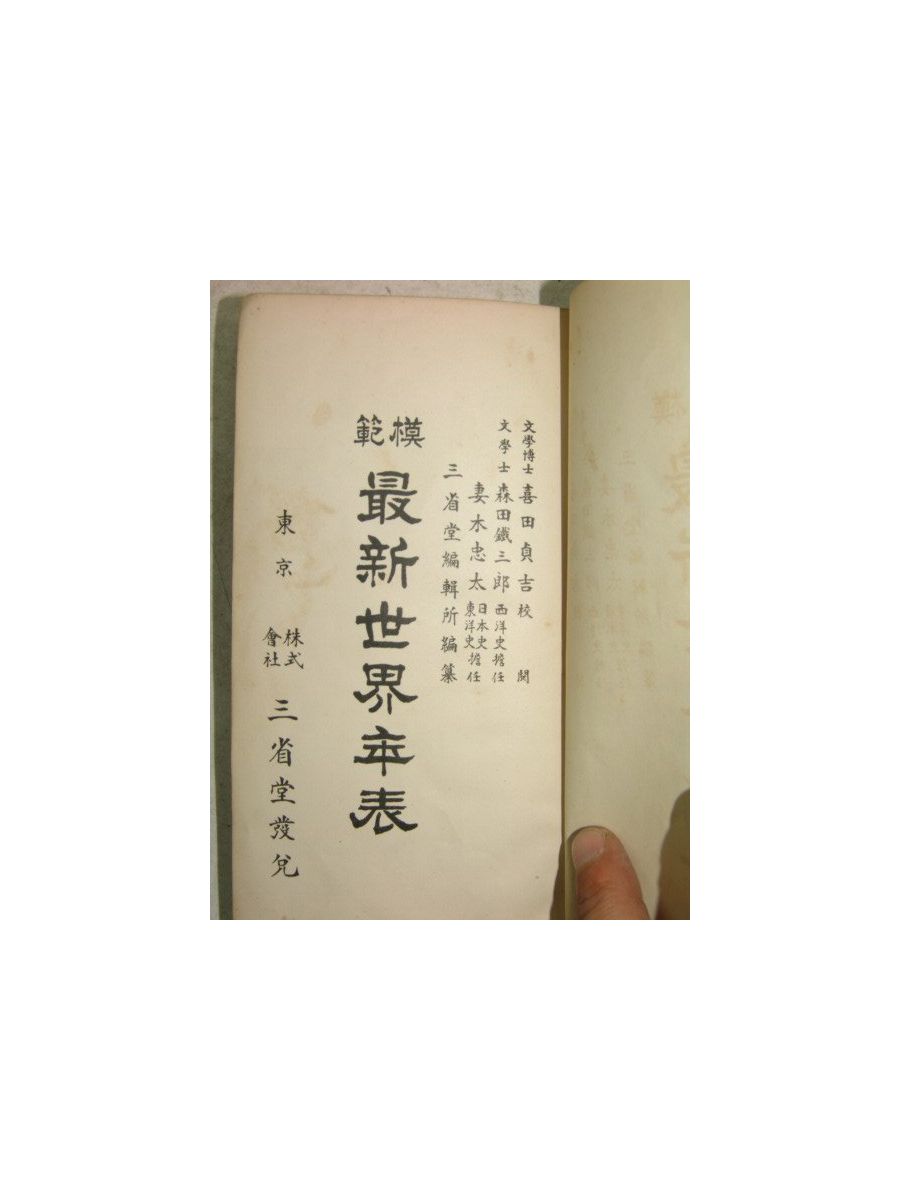 文學博士 喜田貞吉 校閱
文學士 森田鐵三郎 西洋史擔任
妻木忠太 日本史擔任
東洋史擔任
三省堂編輯所編纂
模範
最新世界年表
東京 株式會社 三省堂發兌